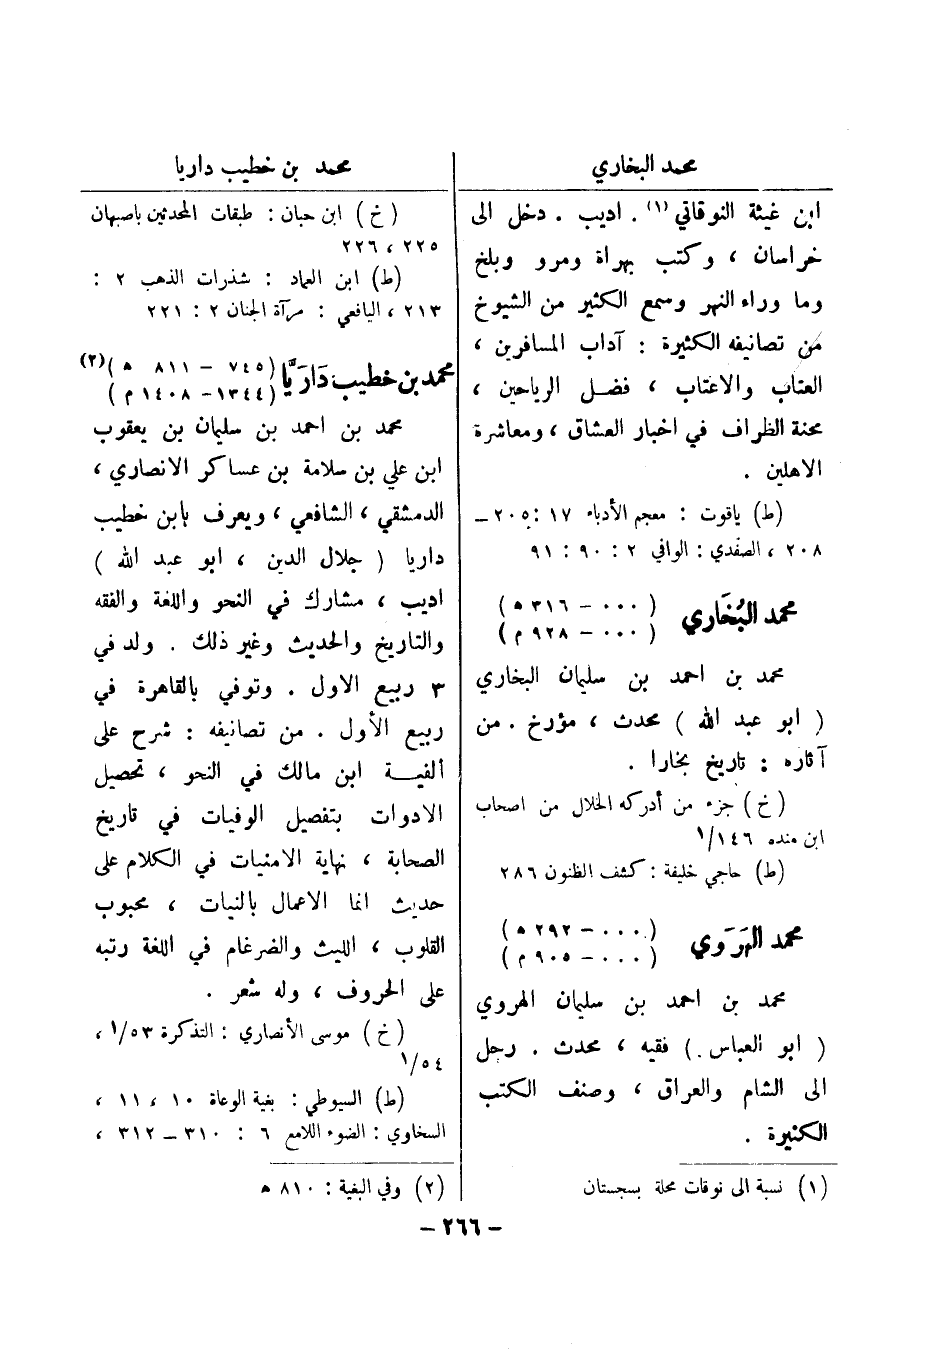 محمد البخاري
ابن غيثة النوقاتي (١) . اديب . دخل الى
خراسان ، وكتب بهراة ومرو وبلخ
وما وراء النهر وسمع الكثير من الشيوخ
من تصانيفه الكثيرة : آداب المسافرين ،
العتاب والاعتاب ، فضل الرياحين ،
محنة الظراف في اخبار العشاق ، ومعاشرة
الاهلين .
(ط) ياقوت : معجم الأدباء ١٧ : ٢٠٥ –
٢٠٨ ، الصفدي : الوافي ٢ : ٩٠ : ٩١
محمد البُخَاري (٠٠٠ – ٣١٦ ه)
(٠٠٠ – ٩٢٨ م)
محمد بن احمد بن سليمان البخاري
( ابو عبد الله ) محدث ، مؤرخ . من
آثاره : تاريخ بخارا .
(خ) جزء من أدركه الخلال من اصحاب
ابن منده ١٤٦/١
(ط) حاجي خليفة : كشف الظنون ٢٨٦
محمد الهَرَوي (٠٠٠ – ٢٩٢ ه)
(٠٠٠ – ٩٠٥ م)
محمد بن احمد بن سليمان الهروي
( ابو العباس ) فقيه ، محدث . رحل
الى الشام والعراق ، وصنف الكتب
الكثيرة .
(١) نسبة الى نوقات محلة بسجستان
محمد بن خطيب داريا
(خ) ابن حبان : طبقات المحدثين باصبهان
٢٢٥ ، ٢٢٦
(ط) ابن العماد : شذرات الذهب ٢ :
٢١٣ ، اليافعي : مرآة الجنان ٢ : ٢٢١
محمد بن خطيب دَارَيَّا (٧٤٥ – ٨١١ ه) (٢)
(١٣٤٤ – ١٤٠٨ م)
محمد بن احمد بن سليمان بن يعقوب
ابن علي بن سلامة بن عساكر الانصاري ،
الدمشقي ، الشافعي ، ويعرف بابن خطيب
داريا ( جلال الدين ، ابو عبد الله )
اديب ، مشارك في النحو واللغة والفقه
والتاريخ والحديث وغير ذلك . ولد في
٣ ربيع الاول . وتوفي بالقاهرة في
ربيع الأول . من تصانيفه : شرح على
ألفية ابن مالك في النحو ، تحصيل
الادوات بتفصيل الوفيات في تاريخ
الصحابة ، نهاية الامنيات في الكلام على
حديث انما الاعمال بالنيات ، محبوب
القلوب ، الليث والضرغام في اللغة رتبه
على الحروف ، وله شعر .
(خ) موسى الأنصاري : التذكرة ٥٣/١ ،
٥٤/١
(ط) السيوطي : بغية الوعاة ١٠ ، ١١ ،
السخاوي : الضوء اللامع ٦ : ٣١٠ – ٣١٢ ،
(٢) وفي البغية : ٨١٠ ه
– ٢٦٦ –